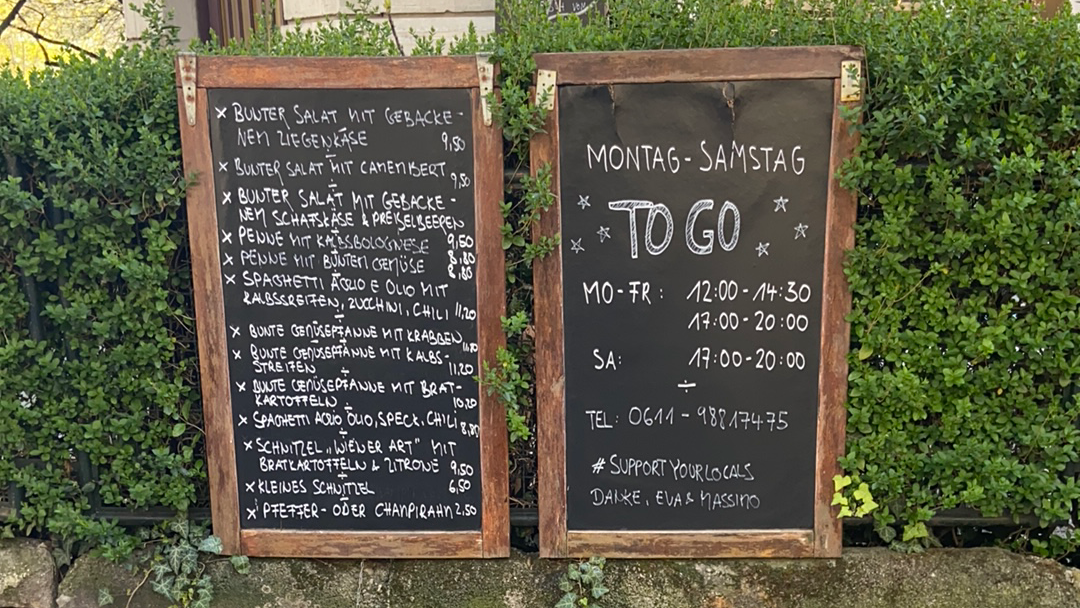 x BUNTER SALAT MIT GEBACKE-
NEM ZIEGENKÄSE 9,50
÷
x BUNTER SALAT MIT CAMEMBERT 9,50
÷
x BUNTER SALAT MIT GEBACKE-
NEM SCHAFSKÄSE & PREISELBEEREN 9,50
x PENNE MIT KALBSBOLOGNESE 8,80
x PENNE MIT BUNTEM GEMÜSE 8,80
x SPAGHETTI AGLIO E OLIO MIT
KALBSSREIFEN, ZUCCHINI, CHILI 11,20
÷
x BUNTE GEMÜSEPFANNE MIT KRABBEN
x BUNTE GEMÜSEPFANNE MIT KALBS-
STREIFEN 11,20
÷
x BUNTE GEMÜSEPFANNE MIT BRAT-
KARTOFFELN 10,20
÷
x SPAGHETTI AGLIO OLIO, SPECK, CHILI 8,80
÷
x SCHNITZEL „WIENER ART" MIT
BRATKARTOFFELN & ZITRONE 9,50
÷
x KLEINES SCHNITZEL 6,50
÷
x PFEFFER- ODER CHAMPIRAHM 2,50
MONTAG - SAMSTAG
TO GO
MO - FR : 12:00 - 14:30
17:00 - 20:00
SA: 17:00 - 20:00
÷
TEL: 0611 - 98817475
# SUPPORT YOUR LOCALS
DANKE, EVA & MASSIMO